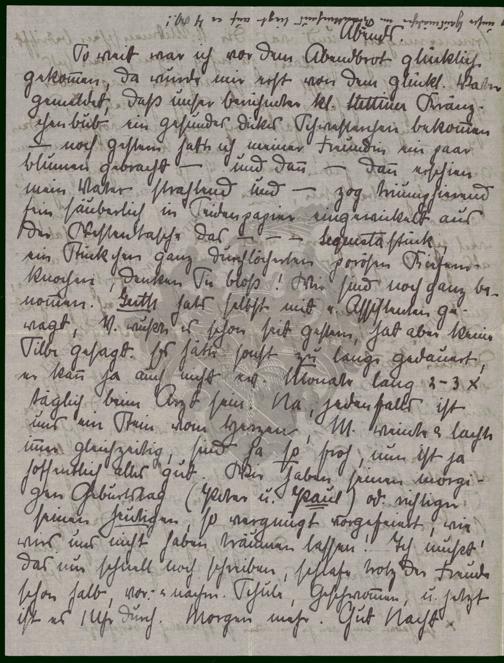 Abends
So weit war ich vor dem Abendbrot glücklich
gekommen, da wurde mir erst von dem glückl. Vater
gemeldet, daß unser berühmter kl. Stettiner Kränz-
chenbub ein gesundes dickes Schwesterchen bekommen
– noch gestern hatte ich meiner Freundin ein paar
blumen gebracht – und dann – dann erschien
mein Vater strahlend und – zog triumphierend
fein säuberlich in Seidenpapier eingewickelt aus
der Westentasche das – – – Sequesterstück,
ein Stückchen ganz durchlöcherten porösen
knochen, denken Sie bloß! Wir sind noch ganz be-
nommen. hats selbst mit s. Assistenten ge-
wagt, V. wußte es schon seit gestern, hat aber keine
Silbe gesagt. Es hätte sonst zu lange gedauert,
er kann ja auch nicht Monate lang 2-3 x
täglich beim Arzt sein. Na, jedenfalls ist
uns ein Stein vom Herzen, M. weinte & lachte
immer gleichzeitig, sind ja so froh, nun ist ja
hoffentlich alles gut. Wir haben seinen morgi-
gen Geburtstag (Peter u. Paul) od. richtiger
seinen heutigen, so vergnügt vorgefeiert, wie
wirs uns nicht haben träumen lassen. Ich mußte
das nur schnell noch schreiben, schlafe trotz der Freude
schon halb, vor- & nachm. Schule, Geschwommen, u. jetzt
ist es 1 Uhr durch. Morgen mehr. Gut Nacht